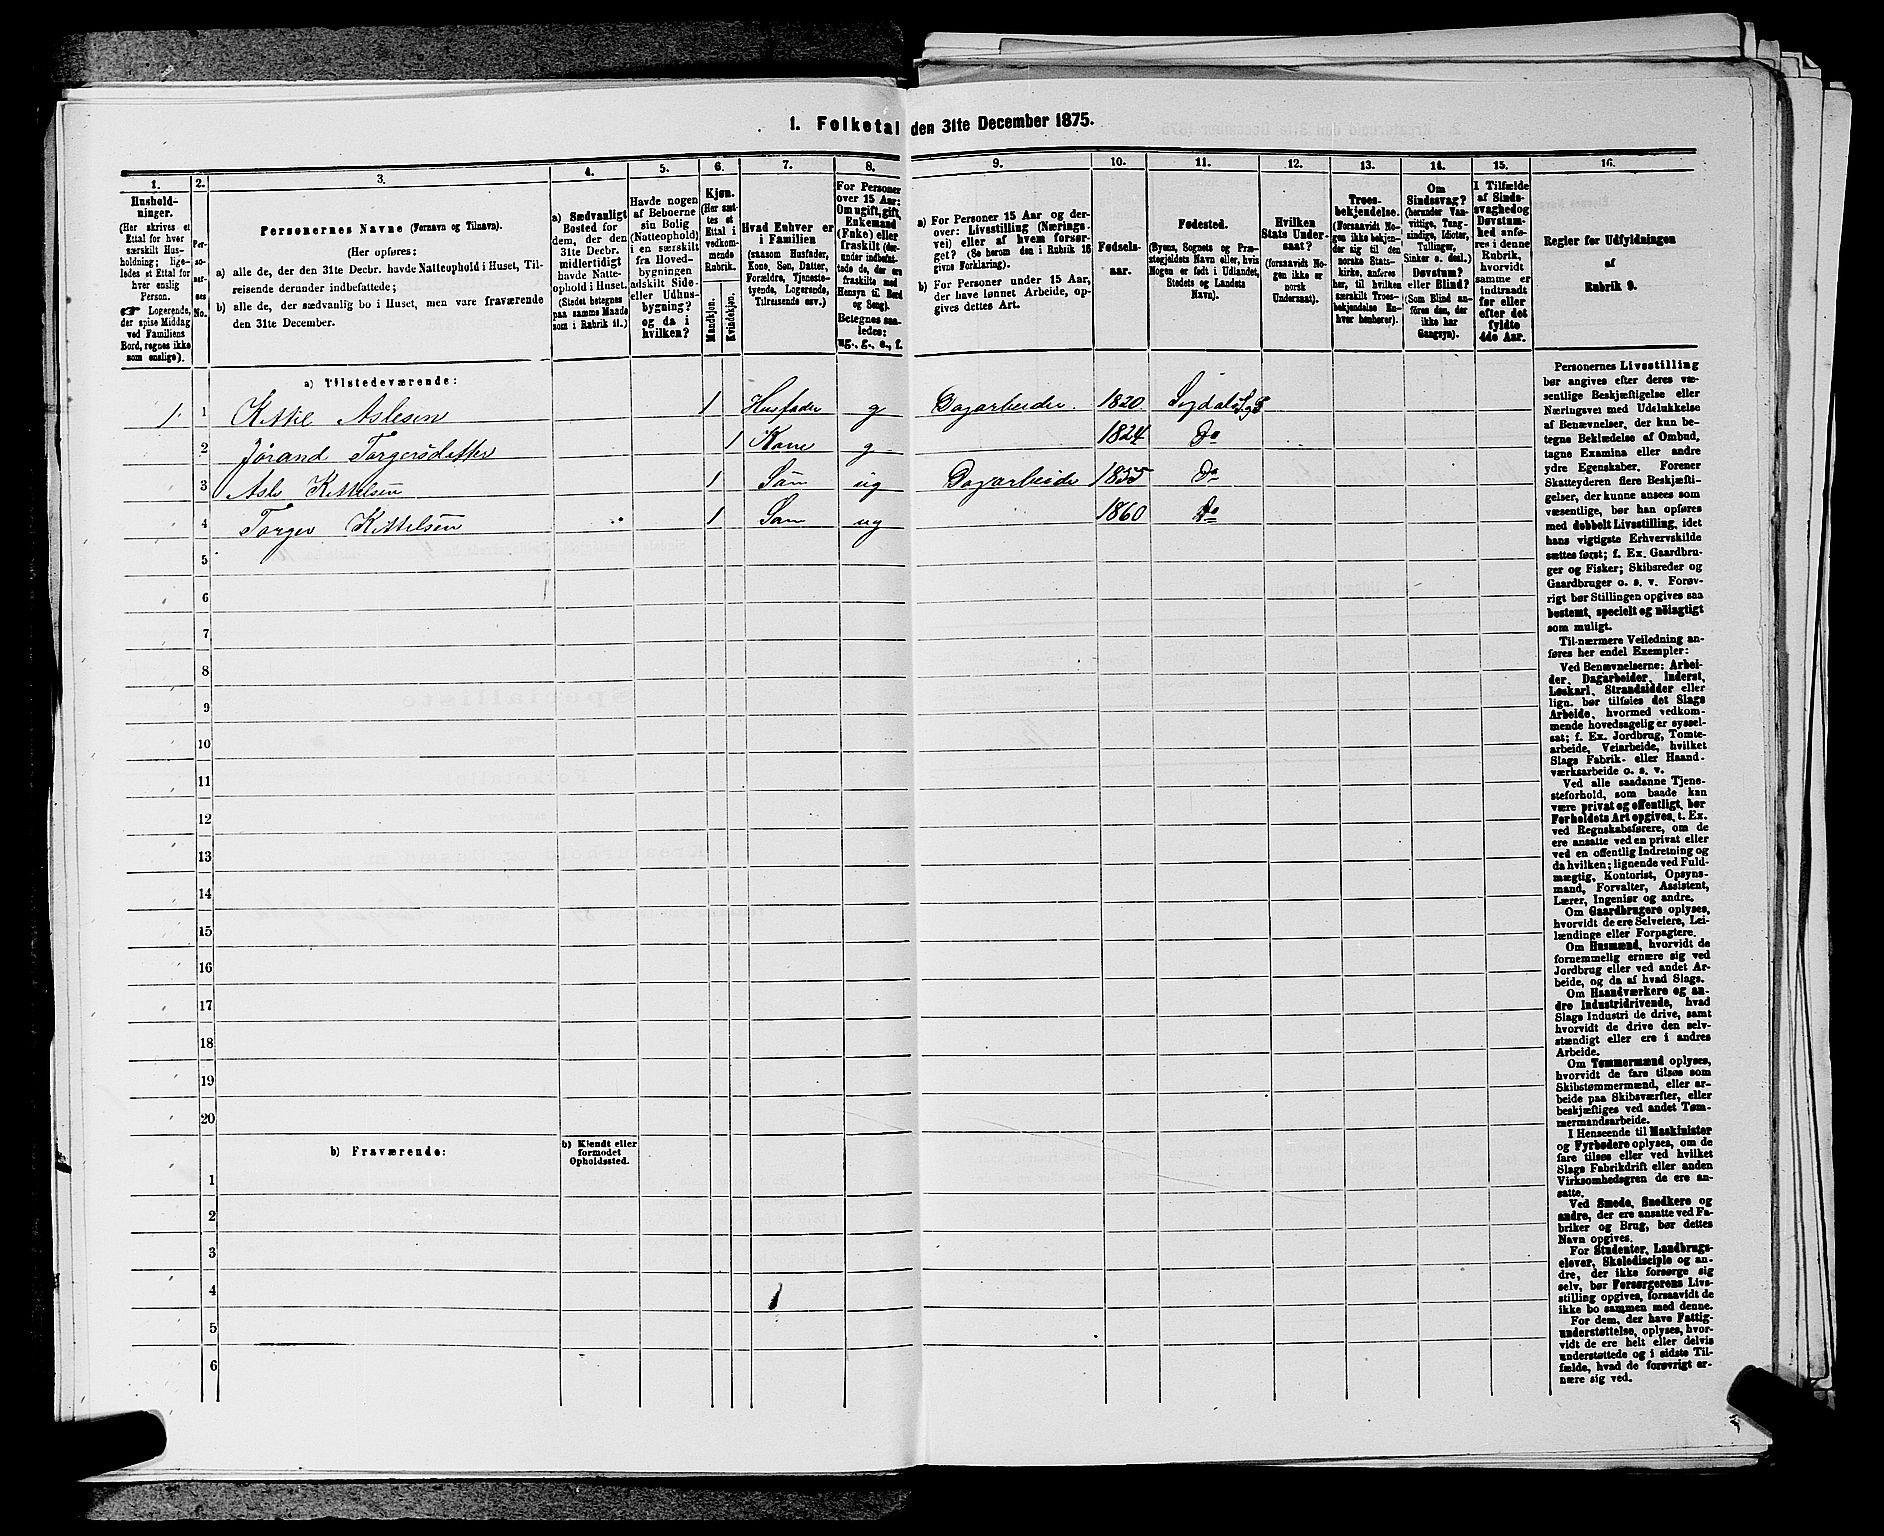 1. Folketal den 31te December 1875.
1.
Hushold-
ninger.
(Her skrives et
Ettal for hver
særskilt Hus-
holdning; lige-
ledes et Ettal for
hver enslig
Person.
☛ Logerende,
der spise Middag
ved Familiens
Bord, regnes ikke
som enslige).
2.
Per-
so-
ner-
nes
No.
3.
Personernes Navne (Fornavn og Tilnavn).
(Her opføres:
a) alle de, der den 31te Decbr. havde Natteophold i Huset, Til-
reisende derunder indbefattede;
b) alle de, der sædvanlig bo i Huset, men vare fraværende
den 31te December.
4.
a) Sædvanligt
Bosted for
dem, der den
31te Decbr.
midlertidigt
havde Natte-
ophold i Huset.
(Stedet betegnes
paa samme Maade
som i Rubrik 11.)
5.
Havde nogen
af Beboerne
sin Bolig
(Natteophold)
i en særskilt
fra Hoved-
bygningen
adskilt Side-
eller Udhus-
bygning?
og da i
hvilken?
6.
Kjøn.
(Her sæt-
tes et
Ettal i
vedkom-
mende
Rubrik.
Mandkjøn.
Kvindekjøn.
7.
Hvad Enhver er
i Familien
(saasom Husfader,
Kone, Søn, Datter,
Forældre, Tjeneste-
tyende, Logerende,
Tilreisende osv.)
8.
For Personer
over 15 Aar:
Om ugift, gift,
Enkemand
(Enke) eller
fraskilt (der-
under indbefat-
tede de, der ere
fraskilte med
Hensyn til Bord
og Seng).
Betegnes saa-
ledes:
ug., g., e., f.
9.
a) For Personer 15 Aar og der-
over: Livsstilling (Nærings-
vei) eller af hvem forsør-
get? (Se herom den i Rubrik 16
givne Forklaring).
b) For Personer under 15 Aar,
der have lønnet Arbeide, op-
gives dettes Art.
10.
Fødsels-
aar.
11.
Fødested.
(Byens, Sognets og Præ-
stegjeldets Navn eller, hvis
Nogen er født i Udlandet,
Stedets og Landets
Navn).
12.
Hvilken
Stats Under-
saat?
(forsaavidt No-
gen ikke er
norsk
Undersaat).
13.
Troes-
bekjendelse.
(Forsaavidt No-
gen ikke bekjen-
der sig til den
norske Stats-
kirke, anføres
her, til hvilken
særskilt Troes-
bekjendelse En-
hver henhører).
14.
Om
Sindssvag?
(herunder Van-
vittige, Tung-
sindige, Idioter,
Tullinger,
Sinker o. desl.)
Døvstum?
eller Blind?
(Som Blind an-
føres den, der
ikke har
Gangsyn).
15.
I Tilfælde
af Sinds-
svaghed og
Døvstum-
hed anfø-
res i denne
Rubrik,
hvorvidt
samme er
indtraadt
før eller
efter det
fyldte
4de Aar.
16.
Regler for Udfyldningen
af
Rubrik 9.
a) Tilstedeværende:
1. 1 Kittil Aslesen 1 Husfader g Dagarbeider. 1820 Sigdals
2 Jørand Torgersdatter 1 Kone g 1824 Do
3 Asle Kittelsen 1 Søn ug Dagarbeider 1855 Do
4 Torger Kittelsen 1 Søn ug 1860 Do
5
6
7
8
9
10
11
12
13
14
15
16
17
18
19
20
b) Fraværende:
b) Kjendt eller
formodet
Opholdssted.
1
2
3
4
5
6
Personernes Livsstilling
bør angives efter deres væ-
sentlige Beskjæftigelse eller
Næringsvei med Udelukkelse
af Benævnelser, der kun be-
tegne Beklædelse af Ombud,
tagne Examina eller andre
ydre Egenskaber. Forener
Skatteyderen flere Beskjæfti-
gelser, der kunne ansees som
væsentlige, bør han opføres
med dobbelt Livsstilling, idet
hans vigtigste Erhvervskilde
sættes først; f. Ex. Gaardbru-
ger og Fisker; Skibsreder og
Gaardbruger o. s. v. Forøv-
rigt bør Stillingen opgives saa
bestemt, specielt og nøiagtigt
som muligt.
Til nærmere Veiledning an-
føres her endel Exempler:
Ved Benævnelserne: Arbei-
der, Dagarbeider, Inderst,
Løskarl, Strandsidder eller
lign. bør tilføies det Slags
Arbeide, hvormed vedkom-
mende hovedsagelig er syssel-
sat; f. Ex. Jordbrug, Tomte-
arbeide, Veiarbeide, hvilket
Slags Fabrik- eller Haand-
værksarbeide o. s. v.
Ved alle saadanne Tjene-
steforhold, som baade kan
være privat og offentligt, bør
Forholdets Art opgives, t. Ex.
ved Regnskabsførere, om de
ere ansatte ved en privat eller
ved en offentlig Indretning og
da hvilken; lignende ved Fuld-
mægtig, Kontorist, Opsyns-
mand, Forvalter, Assistent,
Lærer, Ingeniør og andre.
Om Gaardbrugere oplyses,
hvorvidt de ere Selveiere, Lei-
lændinge eller Forpagtere.
Om Husmænd, hvorvidt de
fornemmelig ernære sig ved
Jordbrug eller ved andet Ar-
beide, og da af hvad Slags.
Om Haandværkere og an-
dre Industridrivende, hvad
Slags Industri de drive, samt
hvorvidt de drive den selv-
stændigt eller ere i andres
Arbeide.
Om Tømmermænd oplyses,
hvorvidt de fare tilsøs som
Skibstømmermænd, eller ar-
beide paa Skibsværfter, eller
beskjæftiges ved andet Tøm-
mermandsarbeide.
I Henseende til Maskinister
og Fyrbødere oplyses, om de
fare tilsøs eller ved hvilket
Slags Fabrikdrift eller anden
Virksomhedsgren de ere an-
satte.
Ved Smede, Snedkere og
andre, der ere ansatte ved Fa-
briker og Brug, bør dettes
Navn opgives.
For Studenter, Landbrugs-
elever, Skoledisciple og an-
dre, der ikke forsørge sig
selv, bør Forsørgerens Livs-
stilling opgives, forsaavidt de
ikke bo sammen med denne.
For dem, der have Fattig-
understøttelse, oplyses, hvor-
vidt de ere helt eller delvis
understøttede og i sidste Til-
fælde, hvad de forøvrigt er-
nære sig ved.